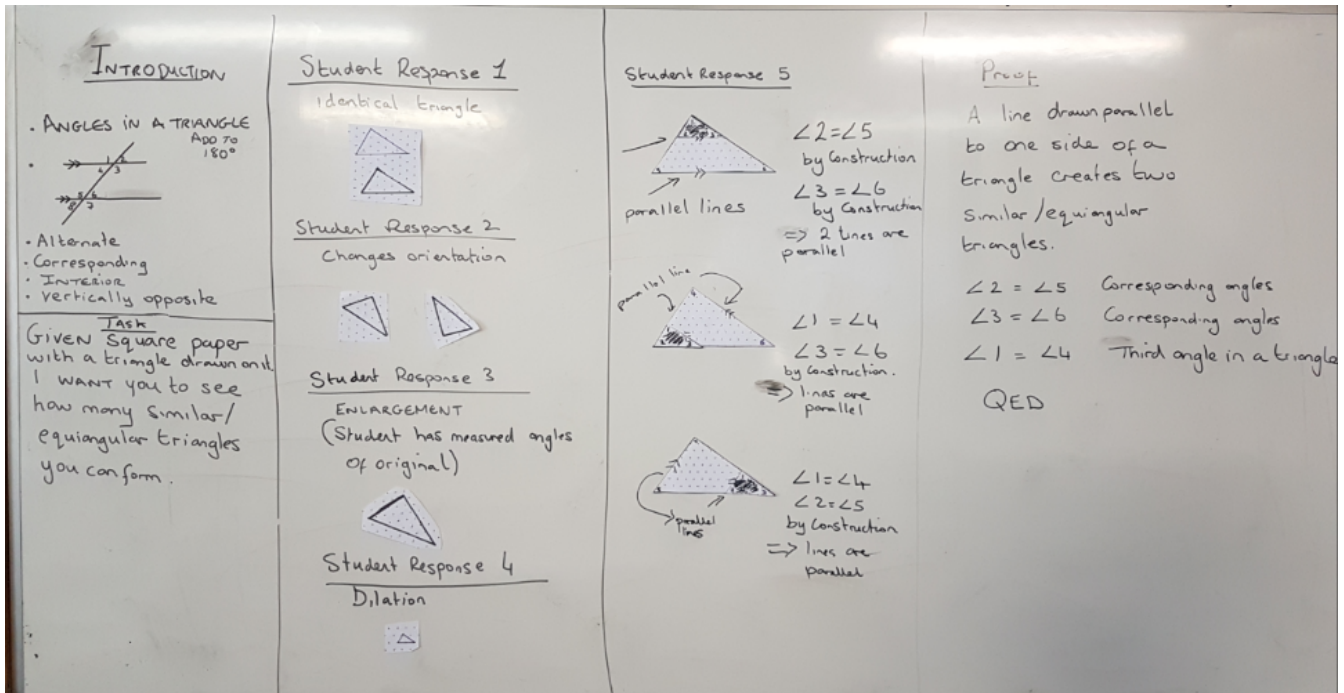 INTRODUCTION
• ANGLES IN A TRIANGLE
ADD TO
180°
•
1 2
4 3
5 6
8 7
• Alternate
• Corresponding
• INTERIOR
• Vertically opposite
Task
GIVEN Square paper
with a triangle drawn on it.
I WANT you to see
how many similar/
equiangular triangles
you can form.
Student Response 1
identical triangle
Student Response 2
Changes orientation
Student Response 3
ENLARGEMENT
(Student has measured angles
of original)
Student Response 4
Dilation
Student Response 5
∠2=∠5
by Construction
∠3=∠6
by Construction
=> 2 Lines are
parallel
parallel lines
parallel line
∠1=∠4
∠3=∠6
by construction.
=> lines are
parallel
∠1=∠4
∠2=∠5
by Construction
=> lines are
parallel
parallel
lines
Proof
A line drawn parallel
to one side of a
triangle creates two
Similar/equiangular
triangles.
∠2 = ∠5 Corresponding angles
∠3 = ∠6 Corresponding angles
∠1 = ∠4 Third angle in a triangle
QED